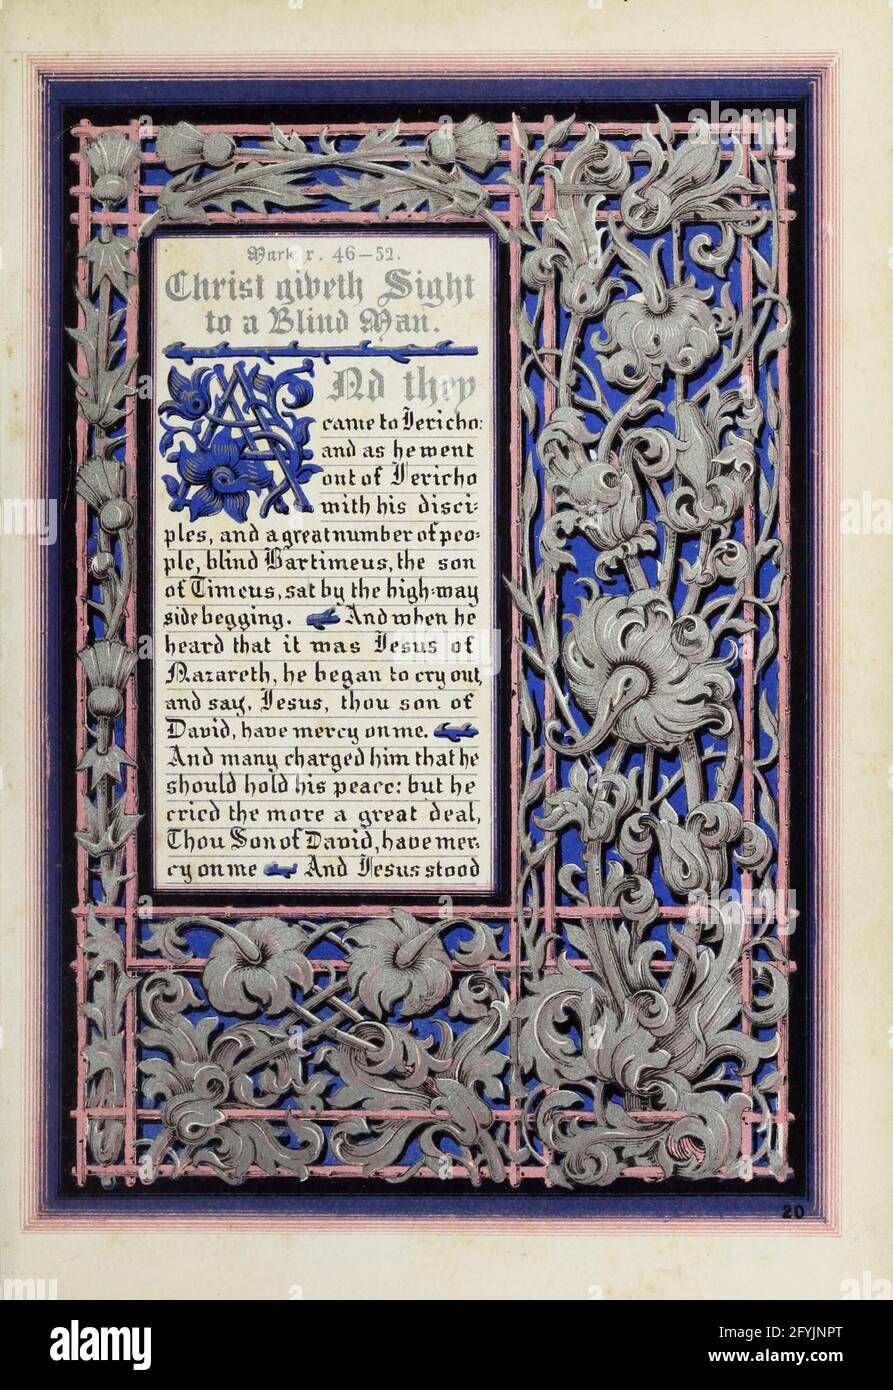 Mark x. 46–52.
Christ giveth Sight
to a Blind Man.
ANd they
came to Jericho:
and as he went
out of Jericho
with his disci:
ples, and a great number of peo:
ple, blind Bartimeus, the son
of Timeus, sat by the high-way
side begging. And when he
heard that it was Jesus of
Nazareth, he began to cry out,
and say, Jesus, thou son of
David, have mercy on me.
And many charged him that he
should hold his peace: but he
cried the more a great deal,
Thou Son of David, have mer:
cy on me And Jesus stood
20
alamy
Image ID: 2FYJNPT
www.alamy.com